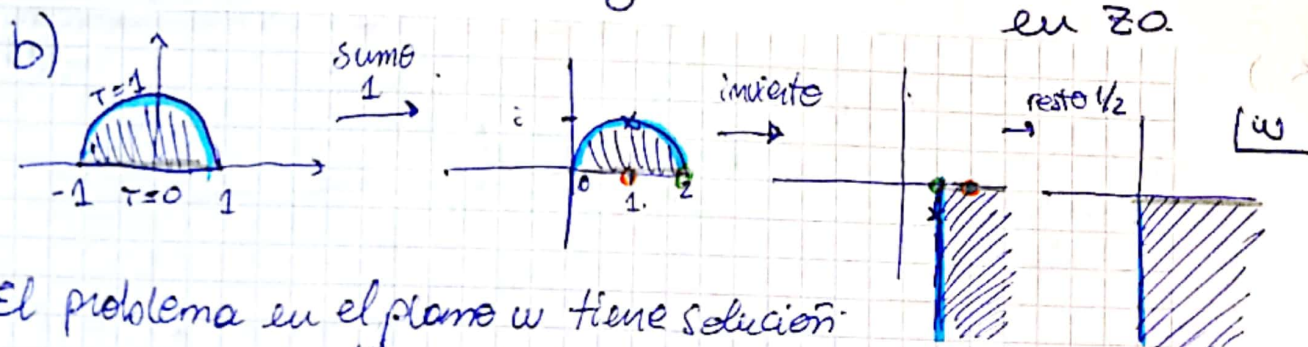 en Zo.
b)
T=1
-1 T=0 1
sumo
1
i
0 1. 2
invierto
resto 1/2
w
El problema en el plano w tiene solución